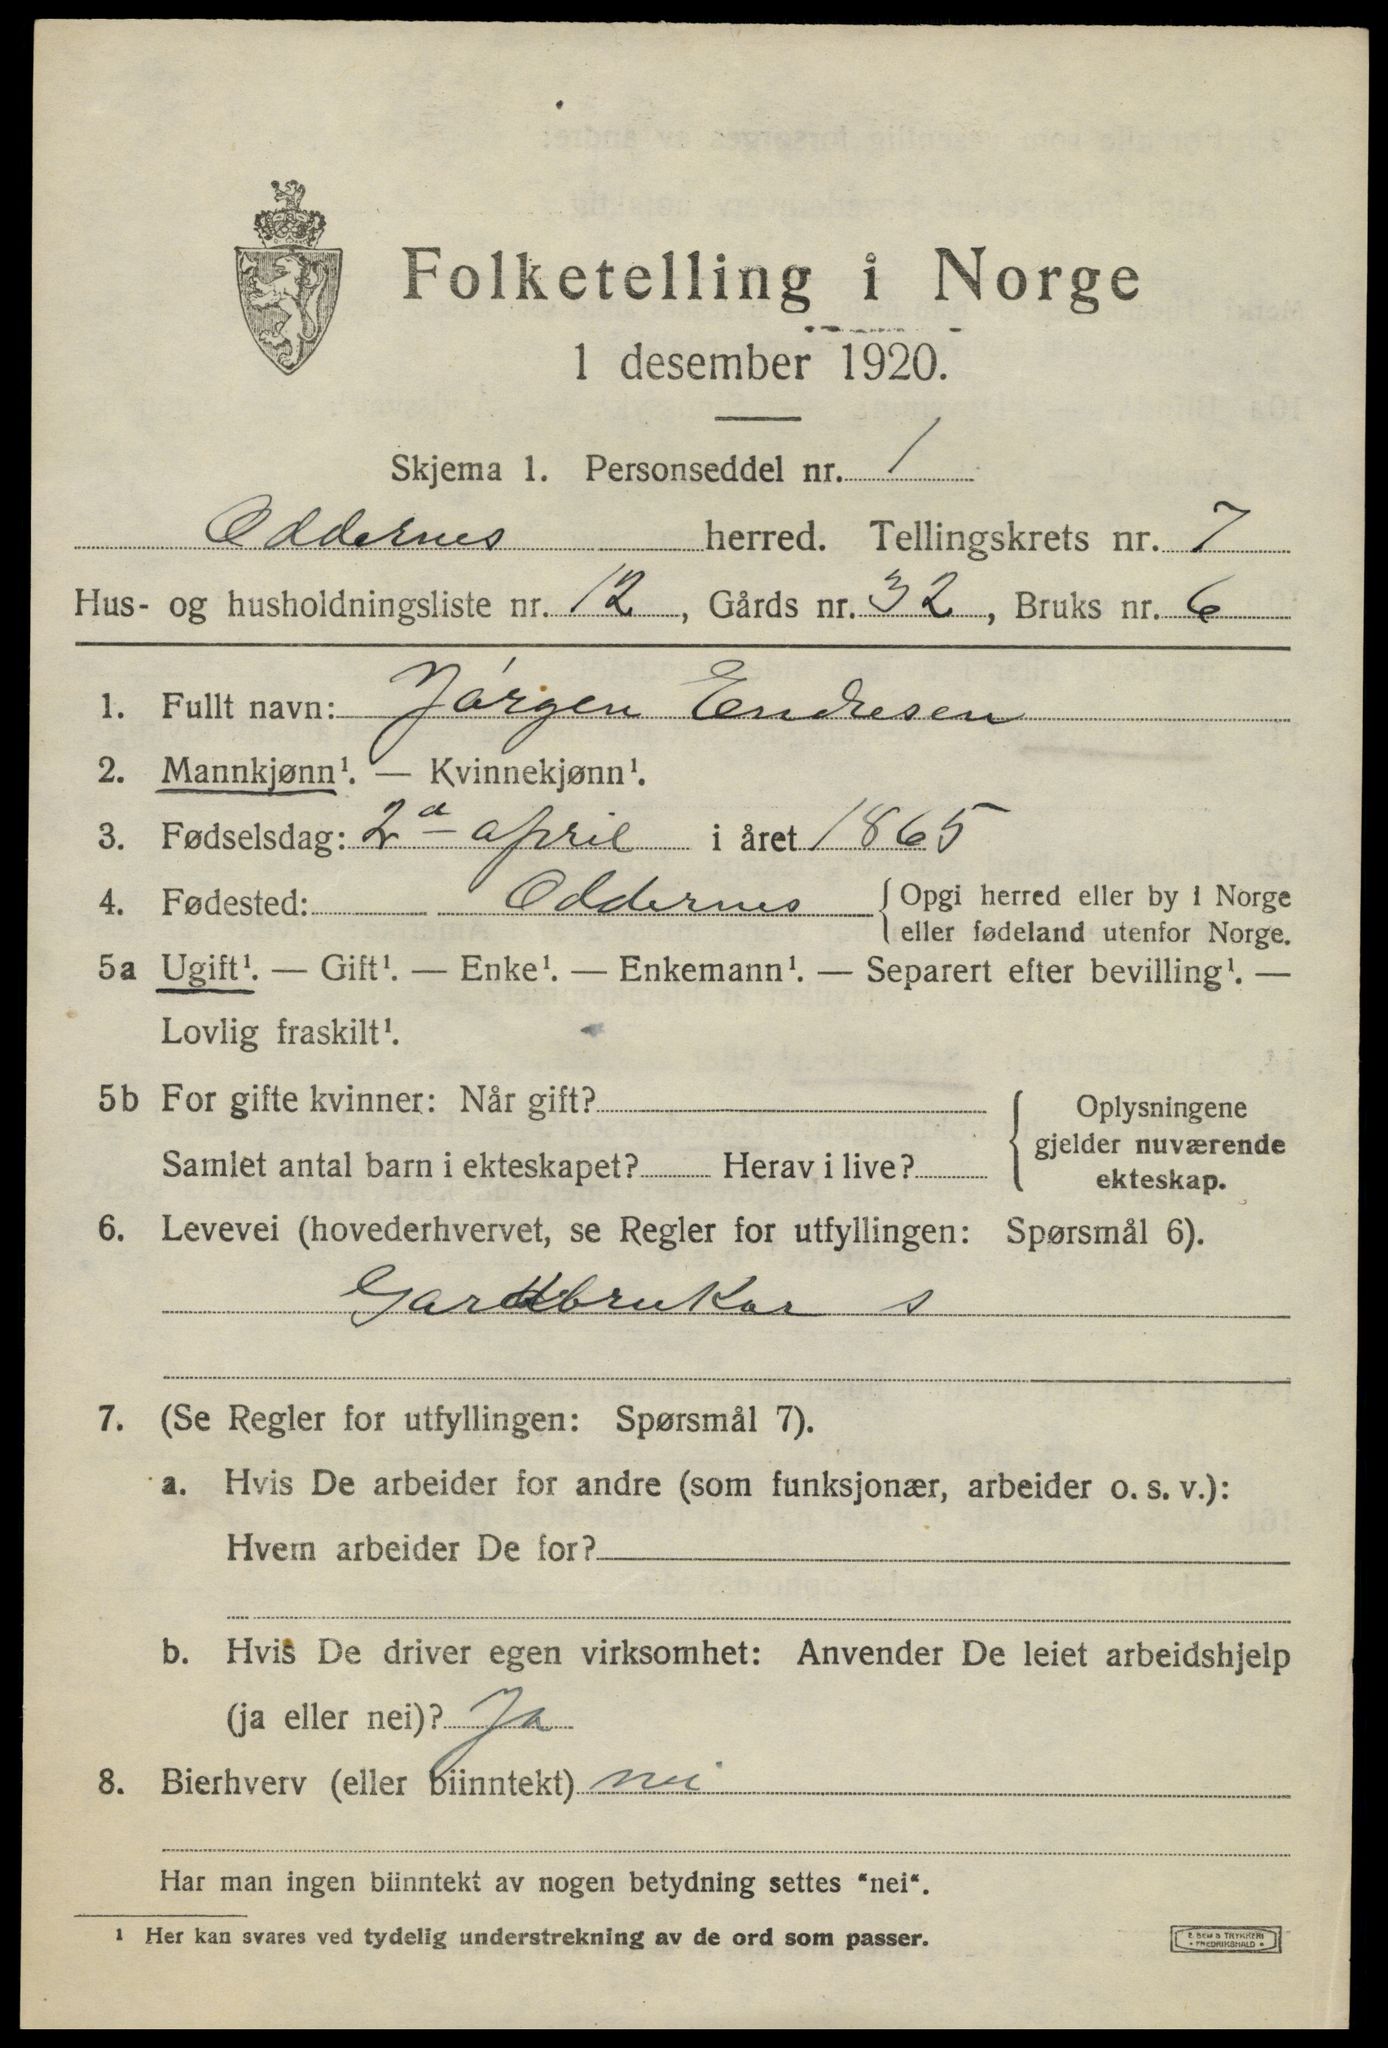 Folketelling i Norge
1 desember 1920.
Skjema 1. Personseddel nr. 1
Oddernes herred. Tellingskrets nr. 7
Hus- og husholdningsliste nr. 12, Gårds nr. 32, Bruks nr. 6
1. Fullt navn: Jørgen Endresen
2. Mannkjønn¹. — Kvinnekjønn¹.
3. Fødselsdag: 2 april i året 1865
4. Fødested: Oddernes { Opgi herred eller by i Norge
eller fødeland utenfor Norge.
5a Ugift¹. — Gift¹. — Enke¹. — Enkemann¹. — Separert efter bevilling¹. —
Lovlig fraskilt¹.
5b For gifte kvinner: Når gift?
Samlet antal barn i ekteskapet? Herav i live?
{ Oplysningene
gjelder nuværende
ekteskap.
6. Levevei (hovederhvervet, se Regler for utfyllingen: Spørsmål 6).
Gardbrukar s
7. (Se Regler for utfyllingen: Spørsmål 7).
a. Hvis De arbeider for andre (som funksjonær, arbeider o. s. v.):
Hvem arbeider De for?
b. Hvis De driver egen virksomhet: Anvender De leiet arbeidshjelp
(ja eller nei)? Ja
8. Bierhverv (eller biinntekt) nei
Har man ingen biinntekt av nogen betydning settes "nei".
¹ Her kan svares ved tydelig understrekning av de ord som passer.
E. SEM'S TRYKKERI
• FREDRIKSHALD •